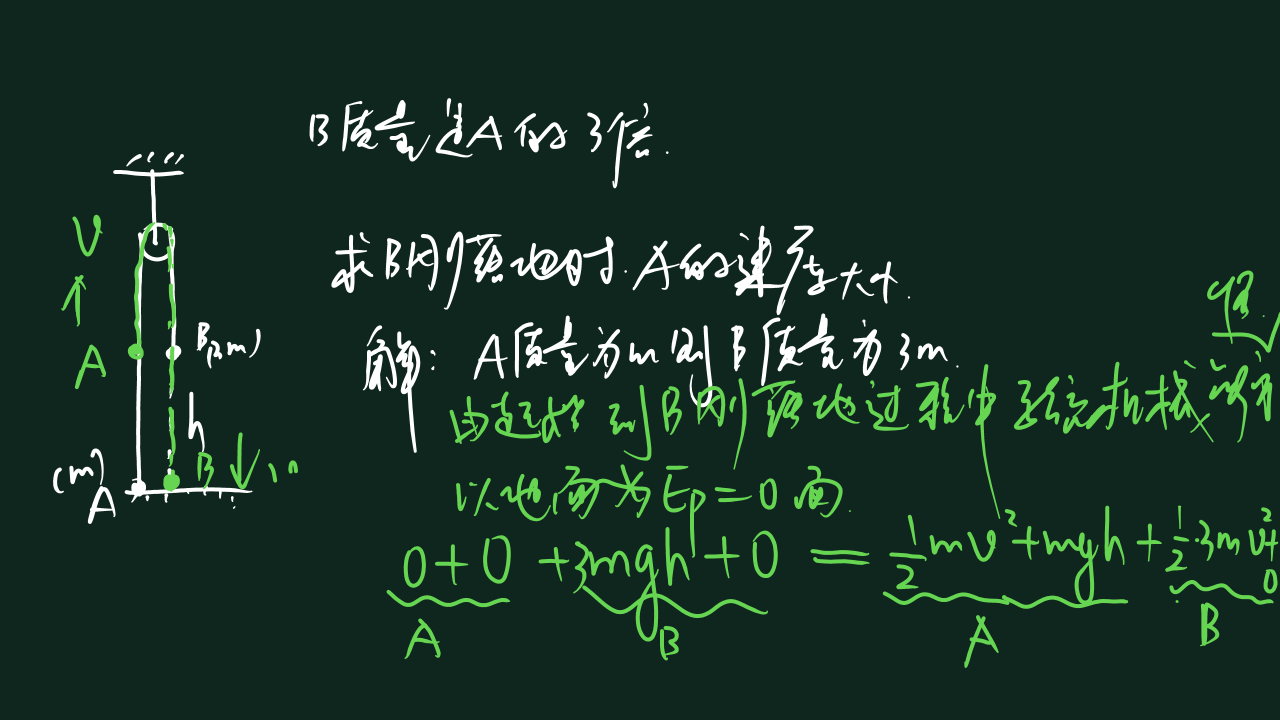 B质量是A的3倍.
求B刚落地时.A的速度大小.
解: A质量为m则B质量为3m.
由起始到B刚落地过程中系统机械
以地面为Ep=0面.
0+0+3mgh+0=½mv²+mgh+½·3mv²+0
A
B
A
B
V
A
h
B
(m)
A